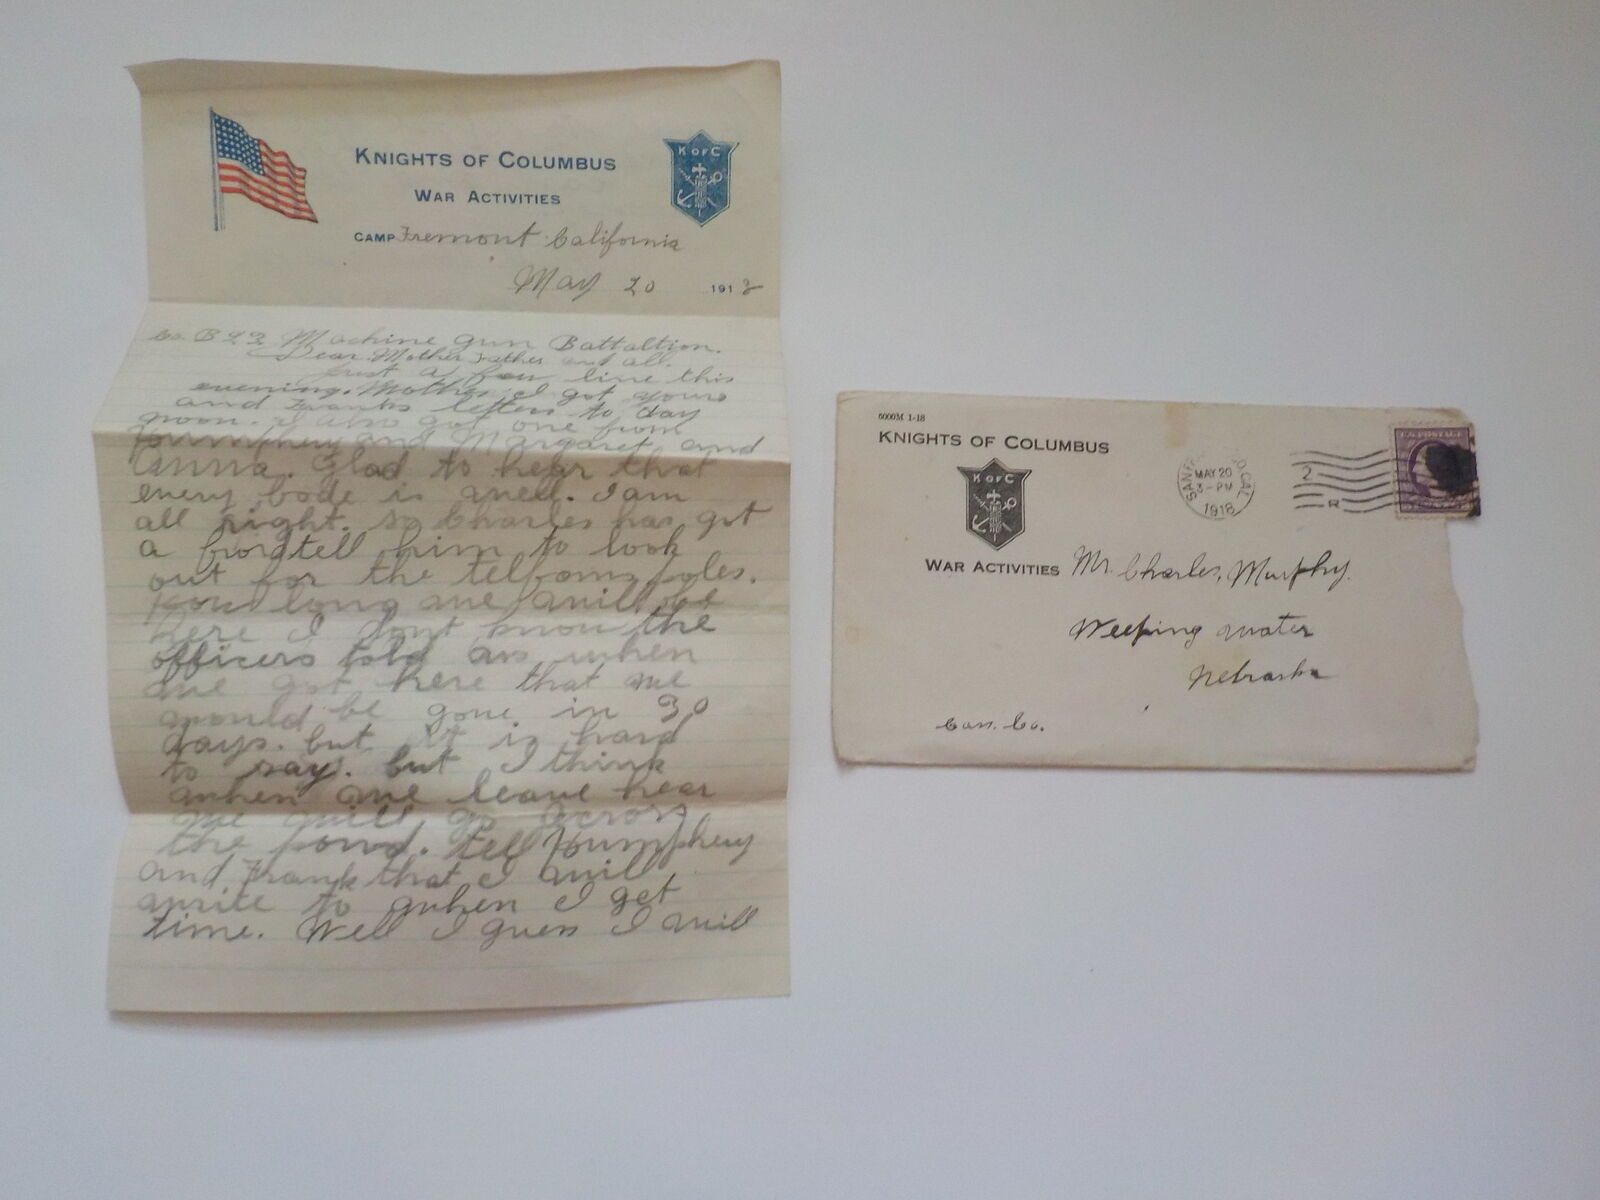 KNIGHTS OF COLUMBUS
WAR ACTIVITIES
K OF C
CAMP Fremont California
May 20 1918
Co. B 22 Machine Gun Battaltion.
Dear Mother Father and all.
Just a few line this
evening. Mother I got yours
and Franks letters to day
noon. I also got one from
Humphrey and Margaret and
Anna. Glad to hear that
every bode is well. I am
all right. so Charles has got
a Ford tell him to look
out for the telfoms poles.
How long we will be
here I dont know the
officers told us when
we got here that we
would be gone in 30
days. but it is hard
to say. but I think
when we leave hear
we will go across
the pond. tell Humphrey
and Frank that I will
write to when I get
time. Well I guess I will
6000M 1-18
KNIGHTS OF COLUMBUS
K OF C
WAR ACTIVITIES
MAY 20
3-PM
1918
CAL.
2
R
U.S. POSTAGE
Mr. Charles, Murphy.
Weeping Water
Nebraska
Cass. Co.